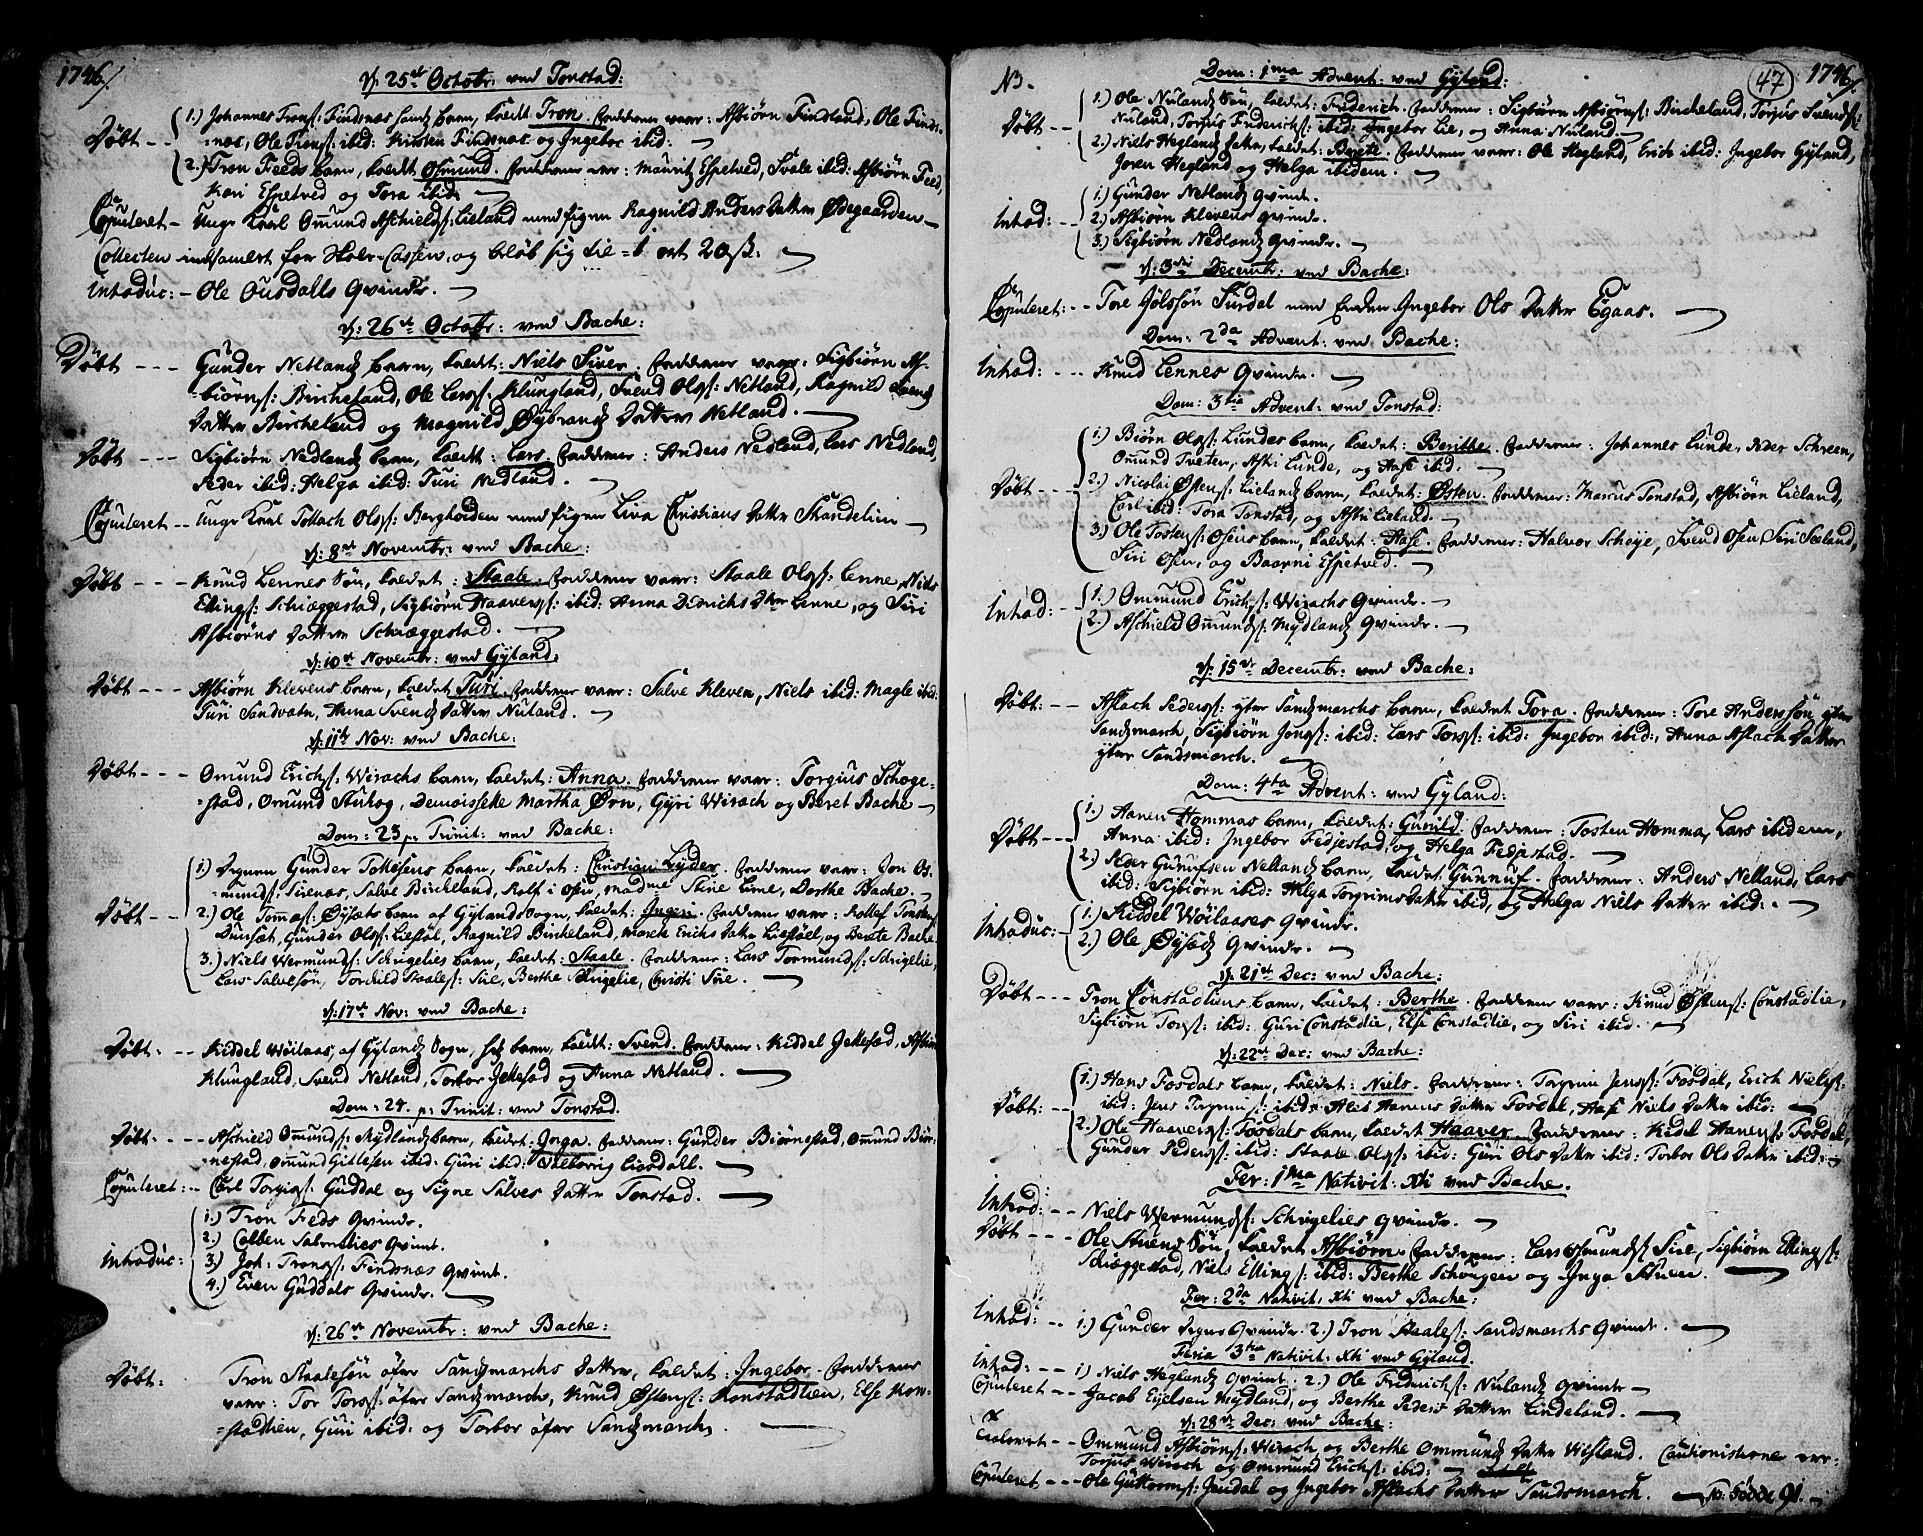 1746/.
d: 25de Octobr: ved Tonstad:
Döbt -- 1.) Johannes Tronss: Findsnæs barn, kaldt Tron. Fadderne vare: Asbiörn Findland, Ole Finds-
=næs, Ole Tronss: ibid: Kirsten Findsnæs og Ingebor ibid:
2.) Tron Feeds barn, kaldt Osmund. Fadderne var: Mauritz Espetved, Svale ibid: Asbiörn Feed,
Kari Espetved og Tora ibid:
Copuleret - Unge Karl Omund Aschields: Lieland med pigen Ragnild Anders Datter Ødegaarden
Collecten indsamlet for Skole-Cassen, og belöb sig til = 1 ort 20 ß:
Introduc: - Ole Ousdalls Qvinde.
d: 26de Octobr: ved Bache:
Döbt --- Gunder Netlands barn, kaldt: Niels Siver. Fadderne vare: Sigbiörn As-
=biörns: Bircheland, Ole Larss: Klungland, Svend Olss: Netland, Ragnild Svends
Datter Bircheland og Magnild Øybrands Datter Netland.
Döbt --- Sigbiörn Nedlands barn, kaldt: Lars. Fadderne: Anders Nedland, Lars Nedland,
Peder ibid: Helga ibid: Turi Nedland.
Copuleret -- Unge Karl Tollach Olss: Bergheiden med pigen Liva Christians Datter Skandelien
d: 8de Novembr: ved Bache:
Döbt --- Knud Lennes Sön, kaldet: Staale. Fadderne vare: Staale Olss: Lenne, Niels
Ellings: Schieggestad, Sigbiörn Haavers: ibid: Anna Didrichs Dter Lenne, og Siri
Asbiörns Datter Schræggestad.
d: 10de Novembr: ved Gyland:
Döbt --- Asbiörn Klevens barn, kaldet Turi. Fadderne vare: Salve Kleven, Niels ibid: Magle ibid:
Turi Sandvatn, Anna Svends Datter Nuland.
d: 11te Nov: ved Bache:
Döbt --- Omund Erichs: Wirachs barn, kaldet: Anna. Fadderne vare: Torgius Schoge-
=stad, Omund Stuhog, Demoiselle Martha Örn, Gyri Wirach og Beret Bache
Dom: 23 p: Trinit: ved Bache:
Döbt -- 1.) Degnen Gunder Tollefsens barn, kaldet: Christian Lyder. Fadderne vare: Jon Os-
=munds: Sirnæs, Salve Bircheland, Rolf i Osen, Madme Stine Lime, Dorthe Bache.
2.) Ole Tomass: Öysæts barn af Gylands Sogn, kaldet: Ingeri. Fadderne vare: Rollef Tonsten,
Dunsæt, Gunder Olss: Liestöl, Ragnild Bircheland, Maren Erichs Datter Liestöll, og Berete Bache.
3.) Niels Wermunds: Schigelies barn, kaldet: Staale. Fadderne: Lars Tormunds: Schigelie,
Lars Salvesön, Torkild Staales: Sie, Berthe Schigelie, Christi Sire.
d: 17de Nov: ved Bache:
Döbt: -- Kiddel Wöilaas, af Gylands Sogn, hs barn, kaldt: Svend. Fadderne: Kiddel Jettestad, Asbiörn
Klungland, Svend Netland, Torbor Jettestad og Anna Netland.
Dom: 24. p: Trinit: ved Tonstad.
Döbt: --- Aschield Omunds: Mydlands barn, kaldet: Inga. Fadderne: Gunder Biörnestad, Omund Biör-
=nestad, Omund Gitlesen ibid: Guri ibid: Walborrig Liordall.
Copuleret: -- Carl Torgiers: Guddal og Signe Salves Datter Tonstad.
Introduc: 1.) Tron Feds Qvinde.
2.) Colben Salmelies Qvinde.
3.) Joh: Tronss: Findsnæs Qvinde.
4.) Even Guddals Qvinde.
d: 26de Novembr: ved Bache:
Döbt: Tron Staalesön öfre Sandsmarchs Datter, kaldet: Ingebor. Fadderne
vare: Tor Torss: öfre Sandsmarch, Knud Östens: Konstadlien, Else Kon-
=stadlien, Guri ibid: og Torbor öfre Sandsmarch.
NB. Dom: 1ma Advent: ved Gyland: 47 1746/.
Döbt -- 1.) Ole Nulands Sön, kaldet: Frederich. Fadderne: Sigbiörn Asbiörns: Bircheland, Torjus Svends:
Nuland, Torjus Friderichs: ibid: Ingebor Lie, og Anna Nuland.
2.) Niels Heglands Datter, kaldet: Berete. Fadderne vare: Ole Hegland, Erich ibid: Ingebor Gyland,
Joren Hegland og Helga ibidem.
Introd: -- 1.) Gunder Netlands Qvinde.
2.) Asbiörn Klevens Qvinde.
3.) Sigbiörn Nedlands Qvinde.
d: 3die Decembr: ved Bache:
Copuleret: -- Tore Jölssön Surdal med Enken Ingebor Ols Datter Egaas.
Dom: 2da Advent: ved Bache:
Introd: --- Knud Lennes Qvinde.
Dom: 3tia Advent: ved Tonstad:
Döbt --- 1.) Biörn Olss: Lundes barn, kaldet: Berithe. Fadderne: Johannes Lunde, Peder Schreen,
Omund Tveten, Asti Lunde, og Aase ibid.
2.) Nicolai Östens: Lielands barn, kaldet: Östen. Fadderne: Marcus Tonstad, Asbiörn Lieland,
Carl ibid: Tora Tonstad, og Astri Lieland.
3.) Ole Tostens: Osens barn, kaldet: Aase. Fadderne: Halvor Scheye, Svend Osen, Siri Seeland,
Siri Osen, og Baarni Espetved.
Introd: - 1.) Ommund Erichs: Wirachs Qvinde.
2.) Aschield Omunds: Mydlands Qvinde.
d: 15de Decembr: ved Bache:
Döbt: -- Aslach Peders: yttre Sandsmarchs barn, kaldet Tora. Fadderne: Tore Anderssön yttre
Sandsmarch, Sigbiörn Jonss: ibid: Lars Torss: ibid: Ingebor ibid:, Anna Aslach Datter
yttre Sandsmarch.
Dom: 4ta Advent: ved Gyland:
Döbt -- 1.) Hanen Hommas barn, kaldet: Gunild. Fadderne: Tosten Homma, Lars ibidem,
Anna ibid: Ingebor Fedjestad, og Helga Fedjestad.
2.) Peder Gunufsen Netlands barn, kaldet Gunnuf. Fadderne: Anders Netland, Lars
ibid: Sigbiörn ibid: Helga Torgrims Datter ibid, og Helga Niels Datter ibid:
Introduc: - 1.) Kiddel Wöilaases Qvinde.
2.) Ole Öysæds Qvinde.
d: 21de Dec: ved Bache:
Döbt --- Tron Constadliens barn, kaldet: Berthe. Fadderne vare: Knud Östens: Constadlie,
Sigbiörn Torss: ibid: Guri Constadlie, Else Constadlie, og Siri ibid.
d: 22de Dec: ved Bache:
Döbt: -- 1.) Hans Fosdals barn, kaldet: Niels. Fadderne: Torgrim Jenss: Fosdal, Erich Nielss:
ibid: Jens Torgrims: ibid: Alis Hanens Datter Fosdal, Aase Niels Datter ibid:
2.) Ole Haavers: Fossdals barn, kaldet Haaver. Fadderne: Kidel Hanens: Fosdal,
Gunder Peders: ibid: Staale Olss: ibid: Guri Ols Datter ibid: Torbor Ols Datter ibid:
Fer: 1ma Nativit: Xti ved Bache.
Introd: -- Niels Wermunds: Schigelies Qvinde.
Döbt --- Ole Stuens Sön, kaldet Asbiörn. Fadderne: Lars Osmunds: Sire, Sigbiörn Ellings:
Schræggestad, Niels Ellings: ibid: Berthe Schougen og Inga Stuen.
Fer: 2da Nativit: Xti ved Bache:
Introd: -- 1.) Gunder Degns Qvinde. 2.) Tron Staales: Sandsmarchs Qvinde.
Feria 3tia Nativit: Xti ved Gyland.
Introd: -- 1) Niels Heglands Qvinde: 2.) Ole Friderichs: Nulands Qvinde
Copuleret -- Jacob Eyelsen Mydland, og Berthe Peders Datter Lindeland.
d: 28de Dec: ved Bache:
Trolovet -- Ommund Asbiörns: Wirach og Berthe Ommunds Datter Widland. Cautionisterne var:
Torjus Wirach og Ommund Erichs: ibid:
Copuleret -- Ole Guttorms: Jendal og Ingebor Aslachs Datter Sandsmarch. NB: Födde 91.